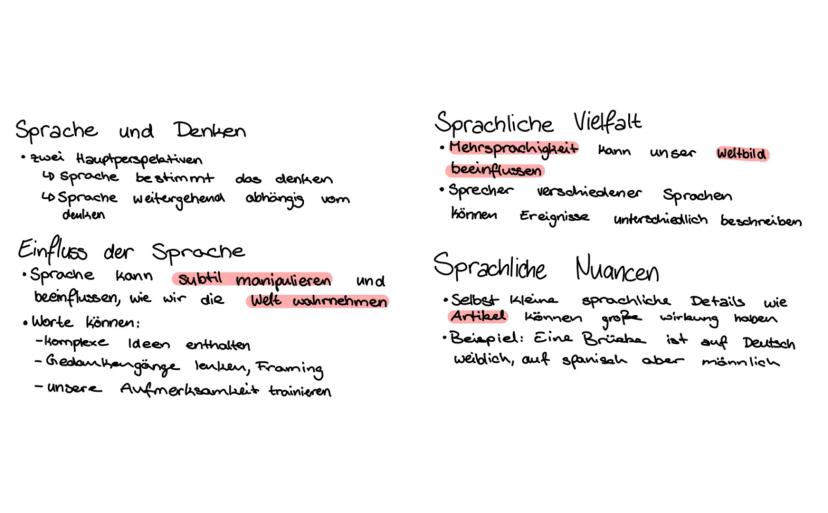 Sprache und Denken
• zwei Hauptperspektiven
↳ Sprache bestimmt das denken
↳ Sprache weitergehend abhängig vom
denken
Einfluss der Sprache
• Sprache kann subtil manipulieren und
beeinflussen, wie wir die Welt wahrnehmen
• Worte können:
- komplexe Ideen enthalten
- Gedankengänge lenken, Framing
- unsere Aufmerksamkeit trainieren
Sprachliche Vielfalt
• Mehrsprachigkeit kann unser Weltbild
beeinflussen
• Sprecher verschiedener Sprachen
können Ereignisse unterschiedlich beschreiben
Sprachliche Nuancen
• Selbst kleine sprachliche Details wie
Artikel können große wirkung haben
• Beispiel: Eine Brücke ist auf Deutsch
weiblich, auf spanisch aber männlich